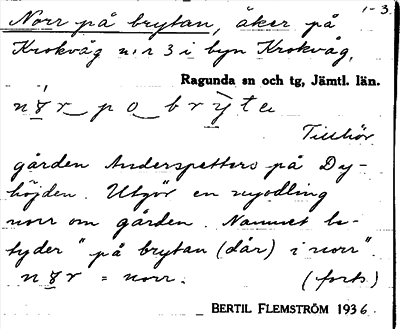 1-3.
Norr på brytan, åker på
Krokvåg n:r 3 i byn Krokvåg,
Ragunda sn och tg, Jämtl. län.
Tillhör
gården Anderspetters på Dy-
höjden. Utgör en nyodling
norr om gården. Namnet be-
tyder "på brytan (där) i norr".
= norr. (forts)
BERTIL FLEMSTRÖM 1936.